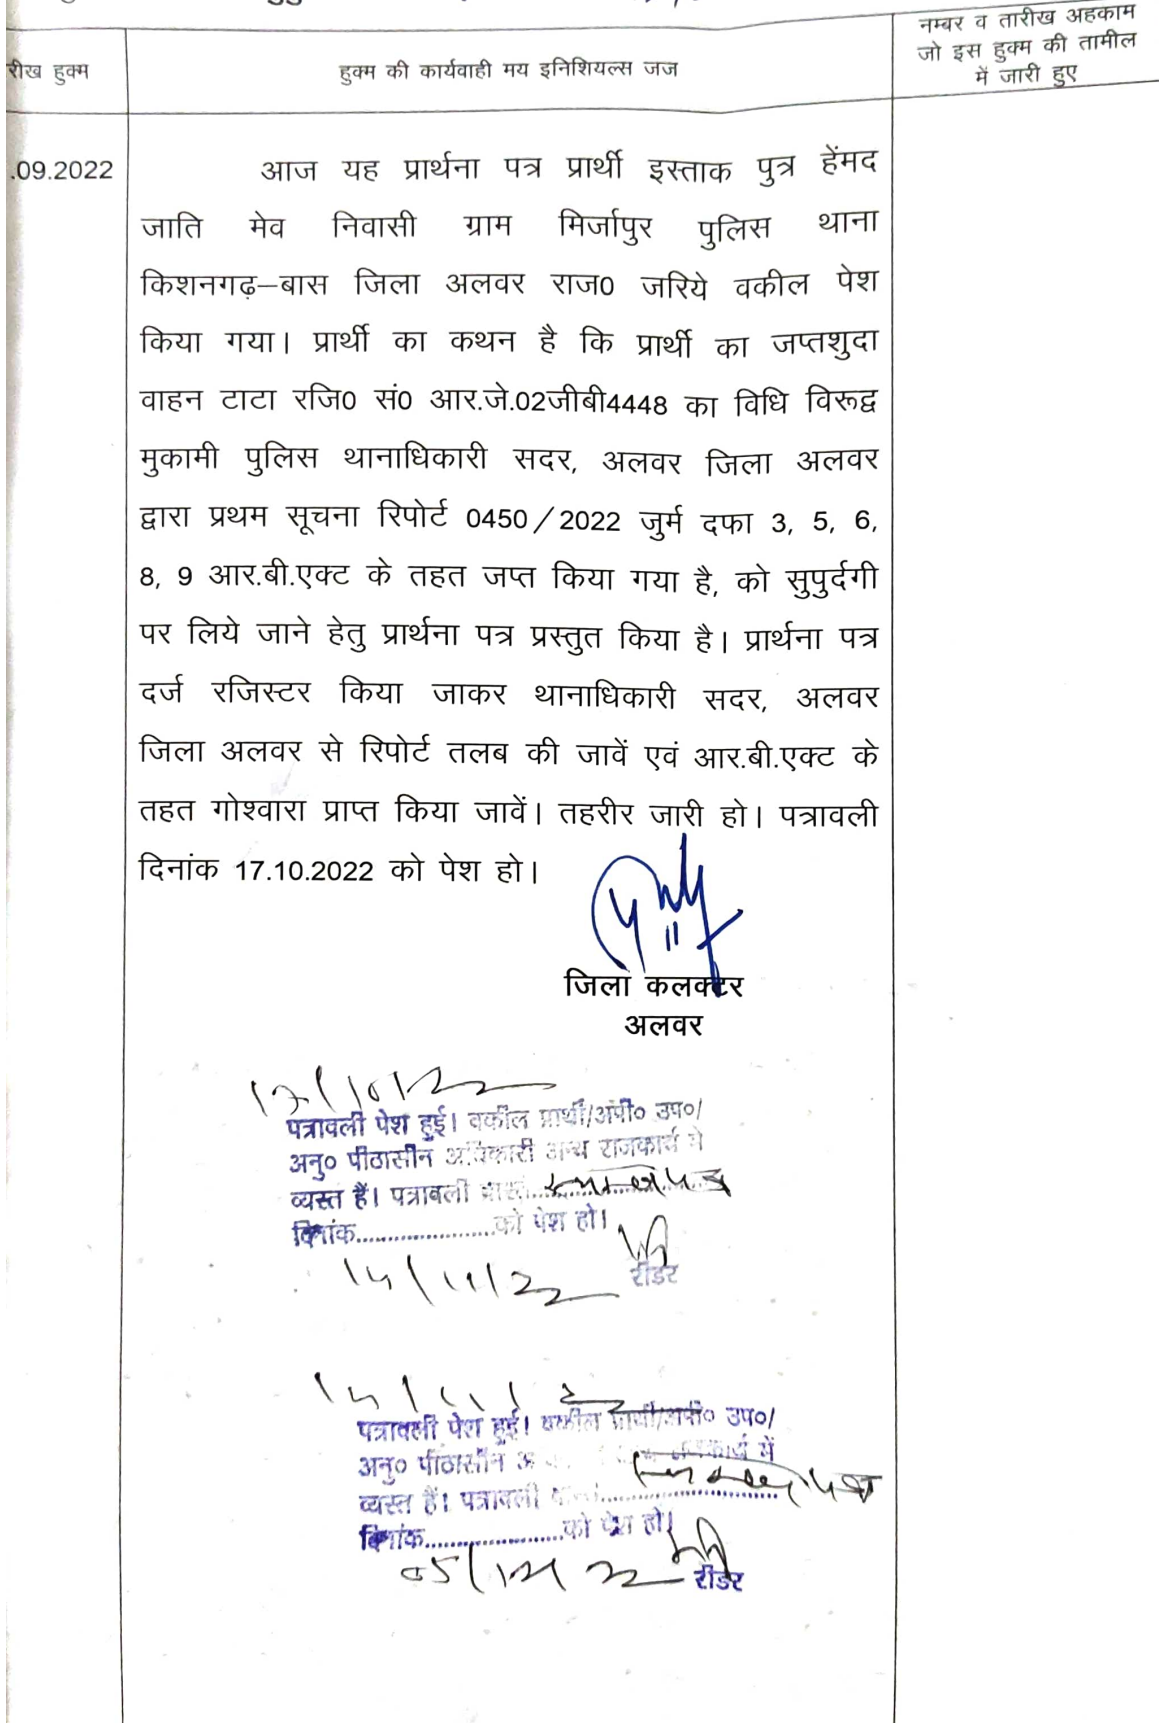 नम्बर व तारीख अहकाम
जो इस हुक्म की तामील
में जारी हुए
रीख हुक्म
हुक्म की कार्यवाही मय इनिशियल्स जज
.09.2022
आज यह प्रार्थना पत्र प्रार्थी इस्ताक पुत्र हेंमद
जाति मेव निवासी ग्राम मिर्जापुर पुलिस थाना
किशनगढ़–बास जिला अलवर राज0 जरिये वकील पेश
किया गया। प्रार्थी का कथन है कि प्रार्थी का जप्तशुदा
वाहन टाटा रजि0 सं0 आर.जे.02जीबी4448 का विधि विरूद्व
मुकामी पुलिस थानाधिकारी सदर, अलवर जिला अलवर
द्वारा प्रथम सूचना रिपोर्ट 0450/2022 जुर्म दफा 3, 5, 6,
8, 9 आर.बी.एक्ट के तहत जप्त किया गया है, को सुपुर्दगी
पर लिये जाने हेतु प्रार्थना पत्र प्रस्तुत किया है। प्रार्थना पत्र
दर्ज रजिस्टर किया जाकर थानाधिकारी सदर, अलवर
जिला अलवर से रिपोर्ट तलब की जावें एवं आर.बी.एक्ट के
तहत गोश्वारा प्राप्त किया जावें। तहरीर जारी हो। पत्रावली
दिनांक 17.10.2022 को पेश हो।
जिला कलक्टर
अलवर
17/10/22
पत्रावली पेश हुई। वकील प्रार्थी/अपी० उप०/
अनु० पीठासीन अधिकारी अन्य राजकार्य मे
व्यस्त हैं। पत्रावली
दिनांक......................को पेश हो।
रीडर
14/11/22
14/11/22
पत्रावली पेश हुई। वकील प्रार्थी/अपी० उप०/
अनु० पीठासीन राजकार्य में
व्यस्त हैं। पत्रावली
दिनांक......................को पेश हो।
05/12/22
रीडर